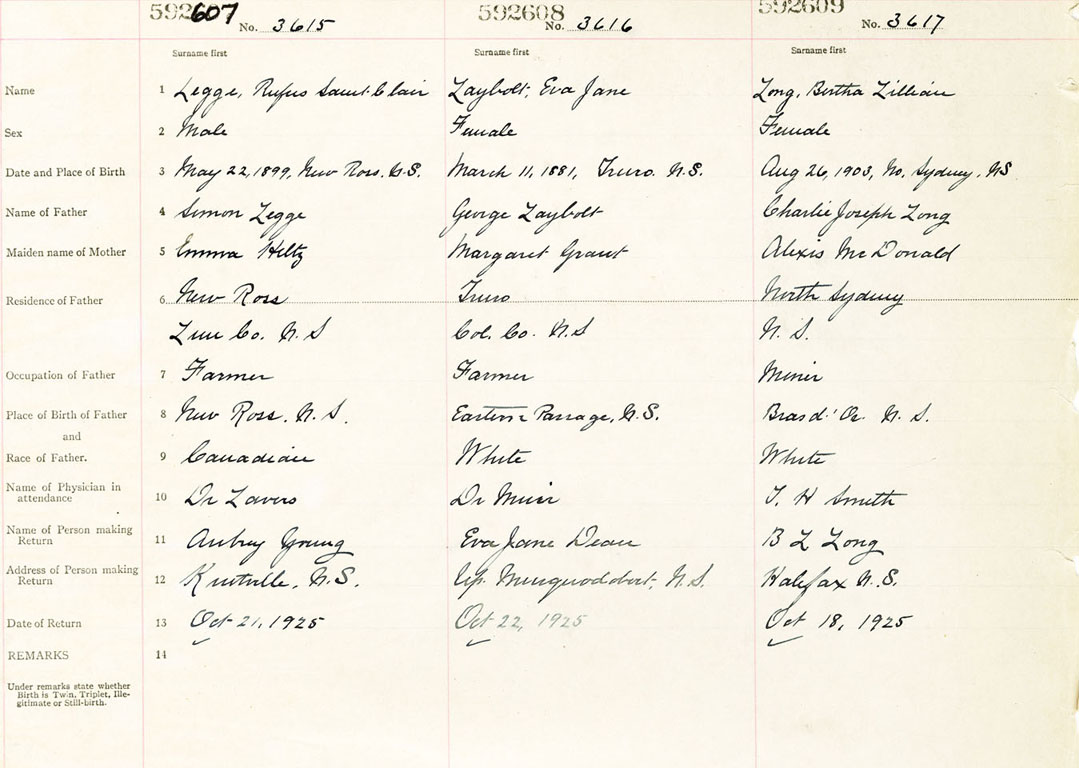 592607 592608 592609
No. 3615 No. 3616 No. 3617
Surname first Surname first Surname first
Name 1 Legge, Rufus Saint Clair Laybolt, Eva Jane Long, Bertha Lillian
Sex 2 Male Female Female
Date and Place of Birth 3 May 22, 1899, New Ross, N.S. March 11, 1881, Truro. N.S. Aug 26, 1903, No. Sydney, NS
Name of Father 4 Simon Legge George Laybolt Charlie Joseph Long
Maiden name of Mother 5 Emma Hiltz Margaret Grant Alexis McDonald
Residence of Father 6 New Ross Truro North Sydney
Lun Co. N.S Col. Co. N.S N.S.
Occupation of Father 7 Farmer Farmer Miner
Place of Birth of Father 8 New Ross, N.S. Eastern Passage, N.S. Bras d'Or N.S.
and
Race of Father. 9 Canadian White White
Name of Physician in
attendance 10 Dr Lavers Dr Muir T. H Smith
Name of Person making
Return 11 Aubrey Young Eva Jane Dean B L Long
Address of Person making
Return 12 Kentville, N.S. Up. Musquodoboit, N.S. Halifax N.S.
Date of Return 13 Oct 21, 1925 Oct 22, 1925 Oct 18, 1925
REMARKS 14
Under remarks state whether
Birth is Twin, Triplet, Ille-
gitimate or Still-birth.